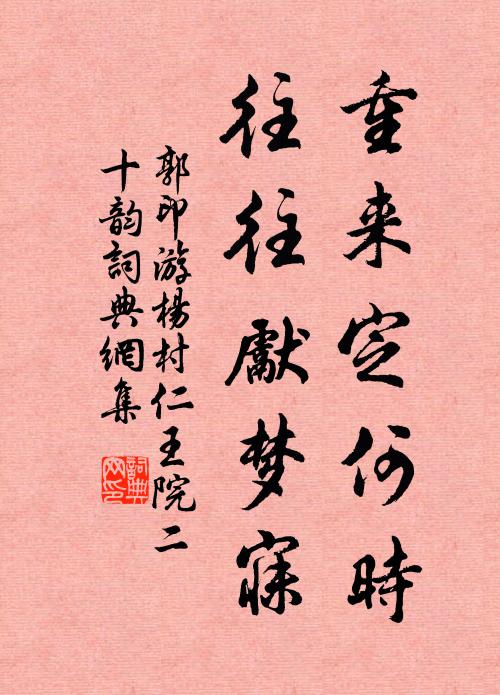 重来定何時
往往獻梦寐
郭印游楊村仁王院二
十韵詞典網集
詞典网印